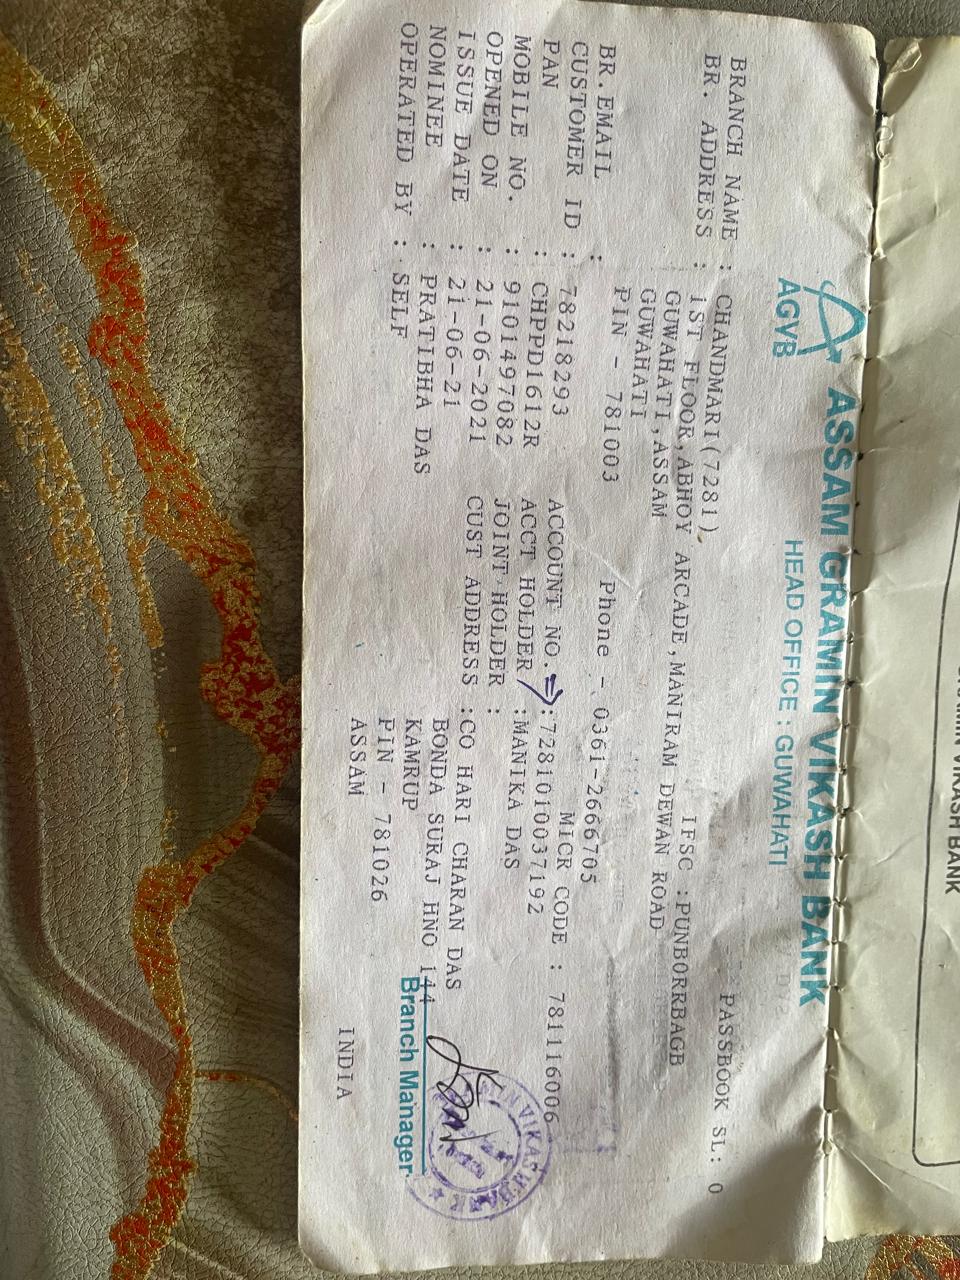 ASSAM GRAMIN VIKASH BANK
AGVB
HEAD OFFICE : GUWAHATI
PASSBOOK SL: 0
BRANCH NAME : CHANDMARI(7281) IFSC :PUNB0RRBAGB
BR. ADDRESS : 1ST FLOOR,ABHOY ARCADE,MANIRAM DEWAN ROAD
GUWAHATI,ASSAM
GUWAHATI
PIN - 781003 Phone - 0361-2666705
BR.EMAIL : MICR CODE : 781116006
CUSTOMER ID : 78218293 ACCOUNT NO. :7281010037192
PAN : CHPPD1612R ACCT HOLDER :MANIKA DAS
MOBILE NO. : 9101497082 JOINT HOLDER :
OPENED ON : 21-06-2021 CUST ADDRESS :CO HARI CHARAN DAS
ISSUE DATE : 21-06-21 BONDA SURAJ HNO 144
NOMINEE : PRATIBHA DAS KAMRUP
OPERATED BY : SELF PIN - 781026
ASSAM INDIA
Branch Manager
VIKASH BANK